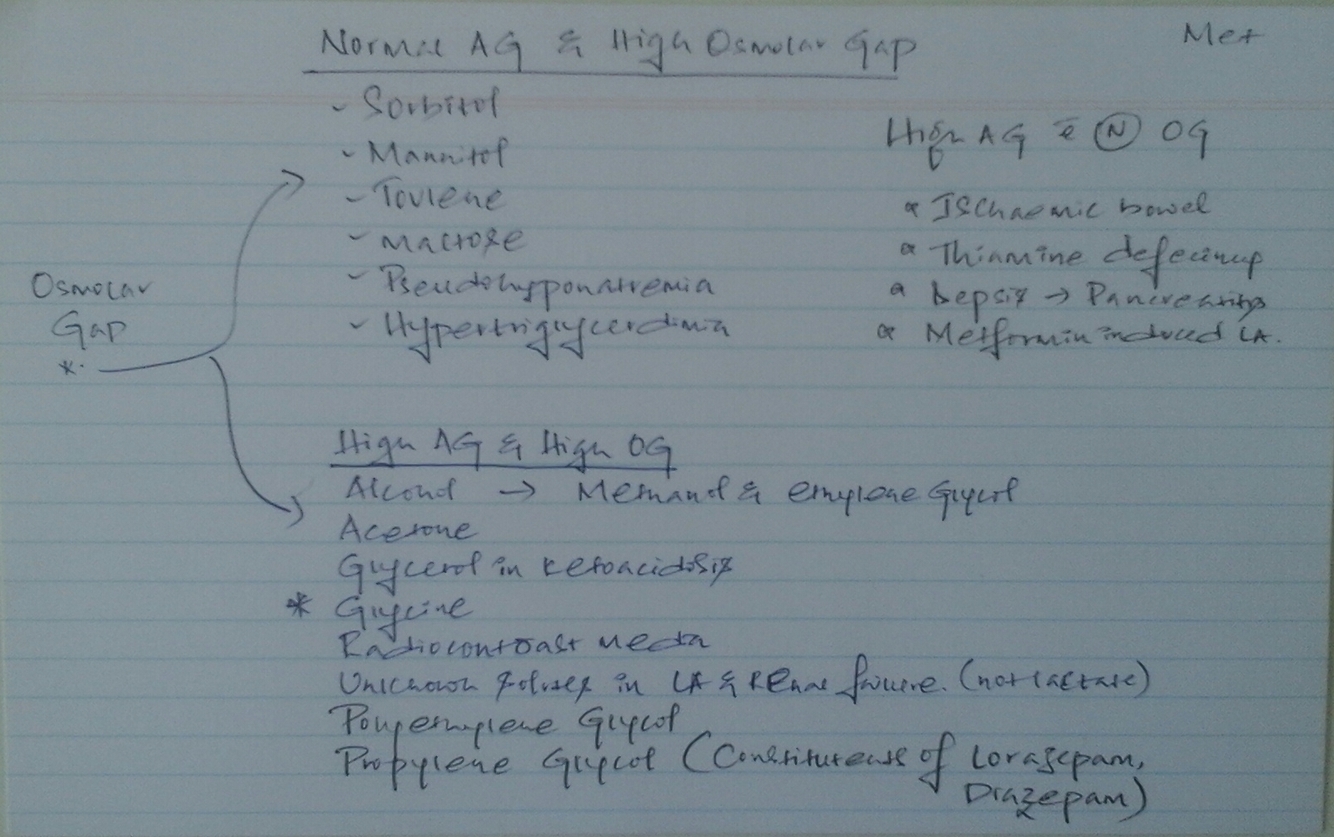 Met
Normal AG & High Osmolar Gap
- Sorbitol
- Mannitol
- Toulene
- Maltose
- Pseudohyponatremia
- Hypertriglycerdimia
High AG c̄ Ⓝ OG
Ischaemic bowel
Thiamine
Sepsis → Pancreatitis
Metformin induced LA.
Osmolar
Gap
*
High AG & High OG
Alcohol → Methanol & ethylene Glycol
Acetone
Glycerol in ketoacidosis
* Glycine
Radiocontrast media
Unknown solutes in LA & Renal failure. (not lactate)
Polyethylene Glycol
Propylene Glycol (Constituents of Lorazepam,
Diazepam)